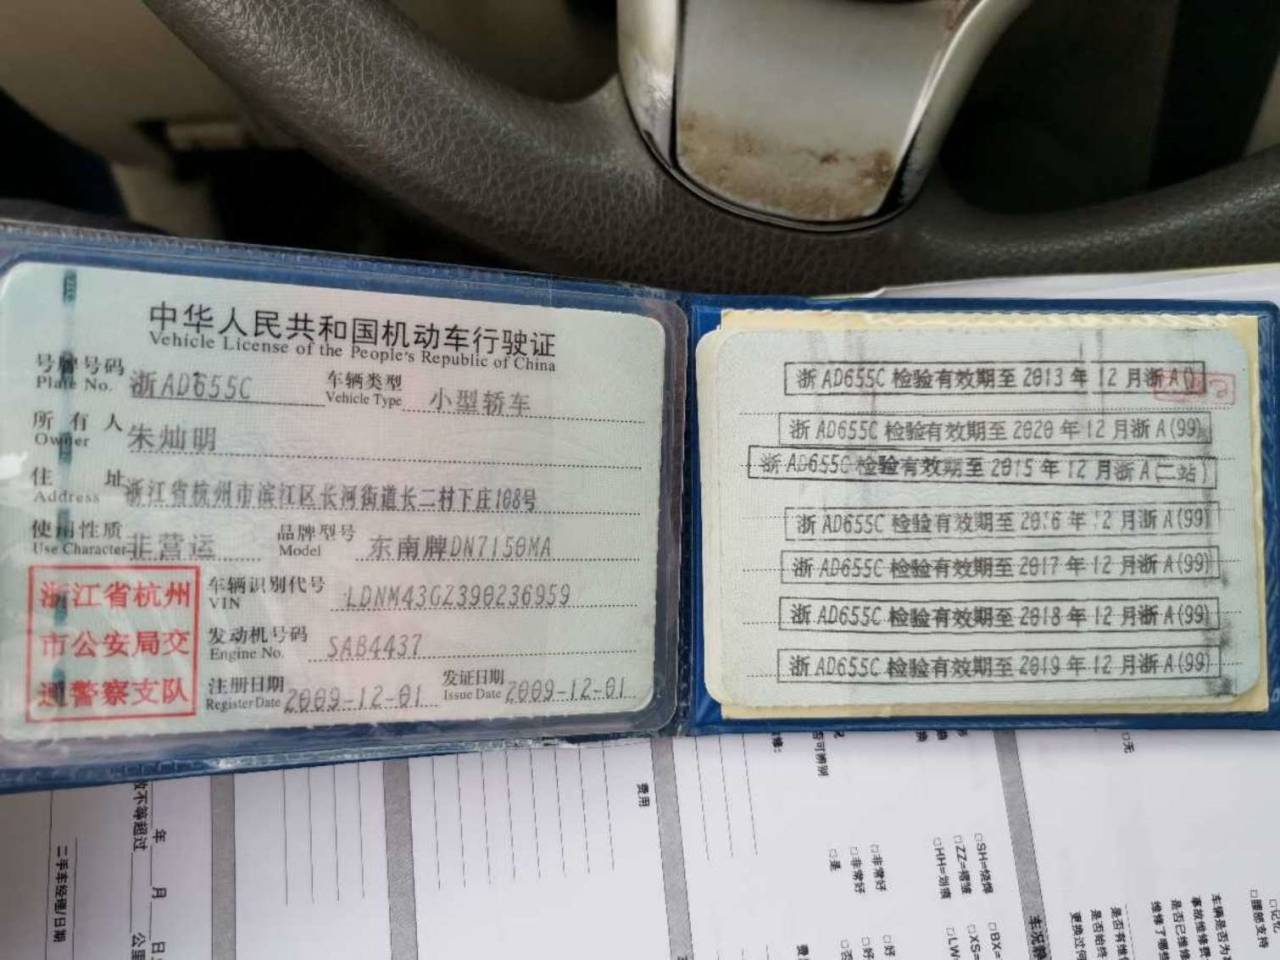 中华人民共和国机动车行驶证
Vehicle License of the People's Republic of China
号牌号码 浙AD655C 车辆类型 小型轿车
Plate No. Vehicle Type
所有人 朱灿明
Owner
住址 浙江省杭州市滨江区长河街道长二村下庄108号
Address
使用性质 非营运 品牌型号 东南牌DN7150MA
Use Character Model
浙江省杭州
市公安局交
通警察支队
车辆识别代号 LDNM43GZ390236959
VIN
发动机号码 SAB4437
Engine No.
注册日期 2009-12-01 发证日期 2009-12-01
Register Date Issue Date
浙AD655C 检验有效期至 2013 年 12 月浙A
浙AD655C 检验有效期至 2020 年 12 月浙A(99)
浙AD655C 检验有效期至 2015 年 12 月浙A(二站)
浙AD655C 检验有效期至 2016 年 12 月浙A(99)
浙AD655C 检验有效期至 2017 年 12 月浙A(99)
浙AD655C 检验有效期至 2018 年 12 月浙A(99)
浙AD655C 检验有效期至 2019 年 12 月浙A(99)
二手车经理/日期
年 月 日
公里
费用
□是
□非常好
□非常好
□好
□好
□SH=烧焊
□ZZ=褶皱
□HH=划痕
□BX=
□XS=
□LW
□无
车况静
更换过
是否始终
是否有维
维修了哪
是否已维修
事故维修费
车辆是否为
□腰部支持
□记忆